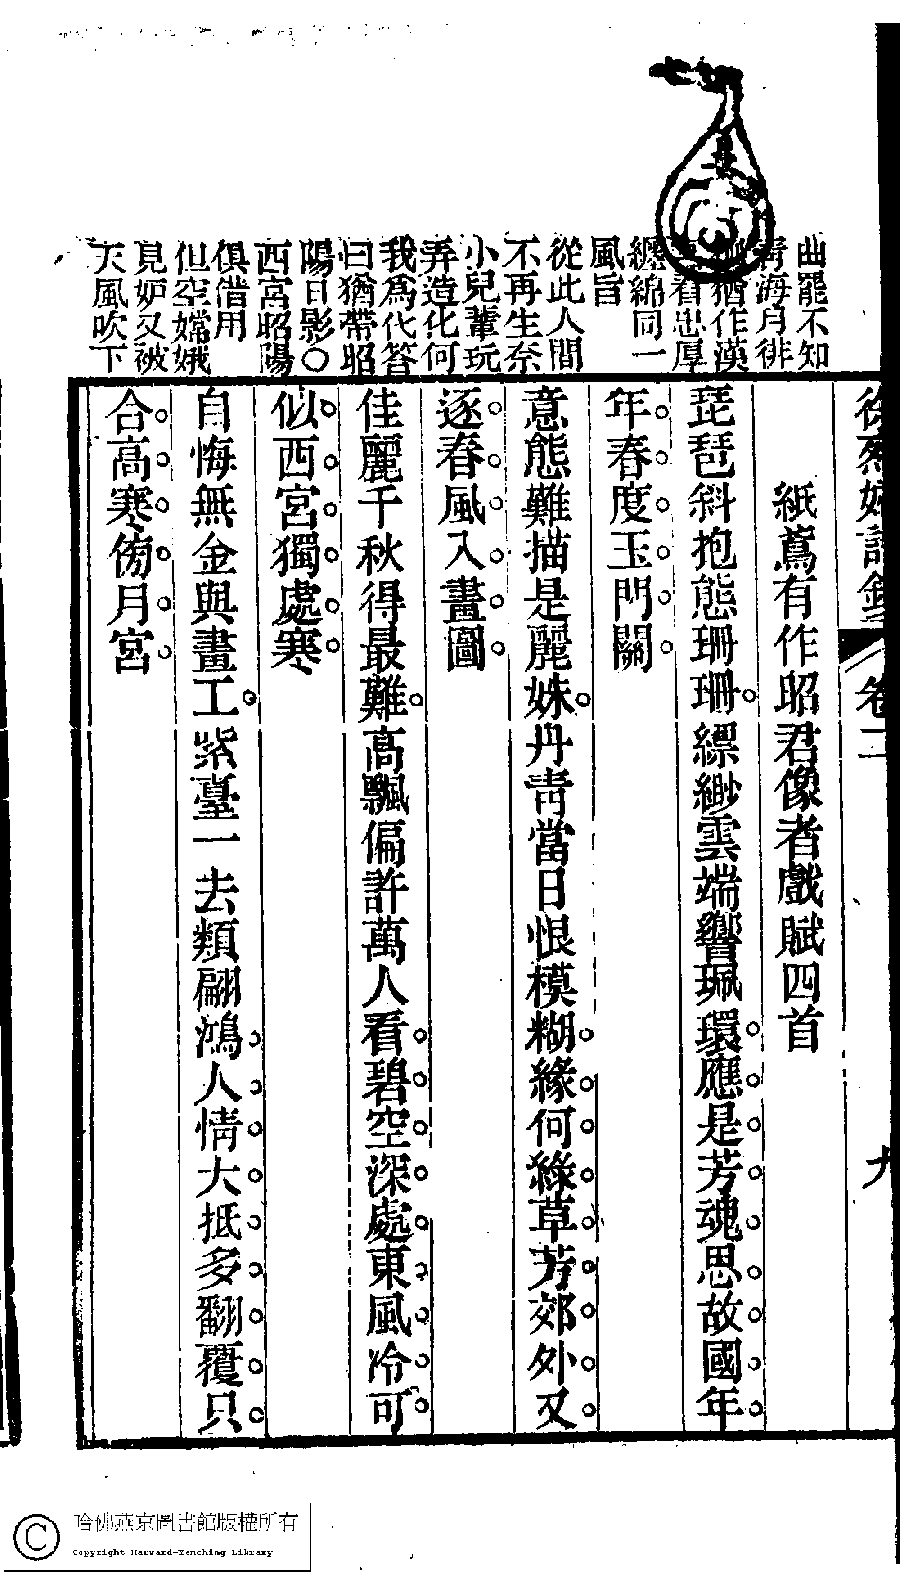 徐烈婦詩鈔 卷二 九
曲罷不知
青海月徘
猶作漢
看忠厚
纏綿同一
風旨
從此人間
不再生奈
小兒輩玩
弄造化何
我爲代答
曰猶帶昭
陽日影〇
西宮昭陽
俱借用
但空嫦娥
見妒又被
天風吹下
紙鳶有作昭君像者戲賦四首
琵琶斜抱態珊珊縹緲雲端響珮環應是芳魂思故國年
年春度玉門關
意態難描是麗姝丹青當日恨模糊緣何綠草芳郊外又
逐春風入畫圖
佳麗千秋得最難高飄偏許萬人看碧空深處東風冷可
似西宮獨處寒
自悔無金與畫工紫臺一去類翩鴻人情大抵多翻覆只
合高寒傍月宮
哈佛燕京圖書館版權所有
Copyright Harvard-Yenching Library